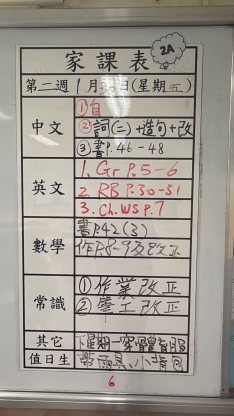 家課表
2A
第二週 1月30日(星期五)
中文
①自
②詞(二)+造句+改
③書P.46-48
英文
1. Gr P.5-6
2. RB P.30-31
3. Ch.WS P.7
數學
書P.42(3)
作P.8-9及改正
常識
①作業改正
②改正
其它
下星期一
值日生
帶雨具、小背包
6